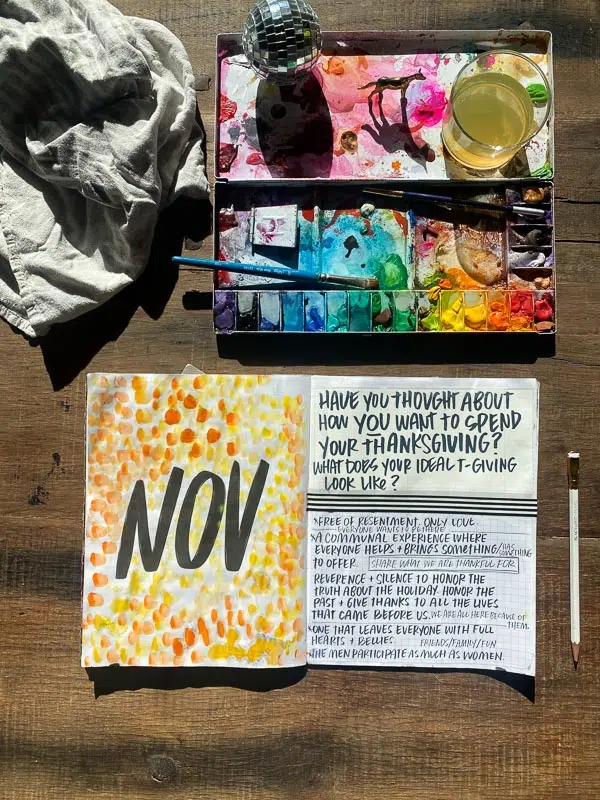 NOV
HAVE YOU THOUGHT ABOUT
HOW YOU WANT TO SPEND
YOUR THANKSGIVING?
WHAT DOES YOUR IDEAL T-GIVING
LOOK LIKE?
FREE OF RESENTMENT. ONLY LOVE.
EVERYONE WANTS TO BE THERE
A COMMUNAL EXPERIENCE WHERE
EVERYONE HELPS + BRINGS SOMETHING/HAS SOMETHING
TO OFFER. SHARE WHAT WE ARE THANKFUL FOR
REVERENCE + SILENCE TO HONOR THE
TRUTH ABOUT THE HOLIDAY. HONOR THE
PAST + GIVE THANKS TO ALL THE LIVES
THAT CAME BEFORE US. WE ARE ALL HERE BECAUSE OF THEM.
ONE THAT LEAVES EVERYONE WITH FULL
HEARTS + BELLIES FRIENDS/FAMILY/FUN
THE MEN PARTICIPATE AS MUCH AS WOMEN.